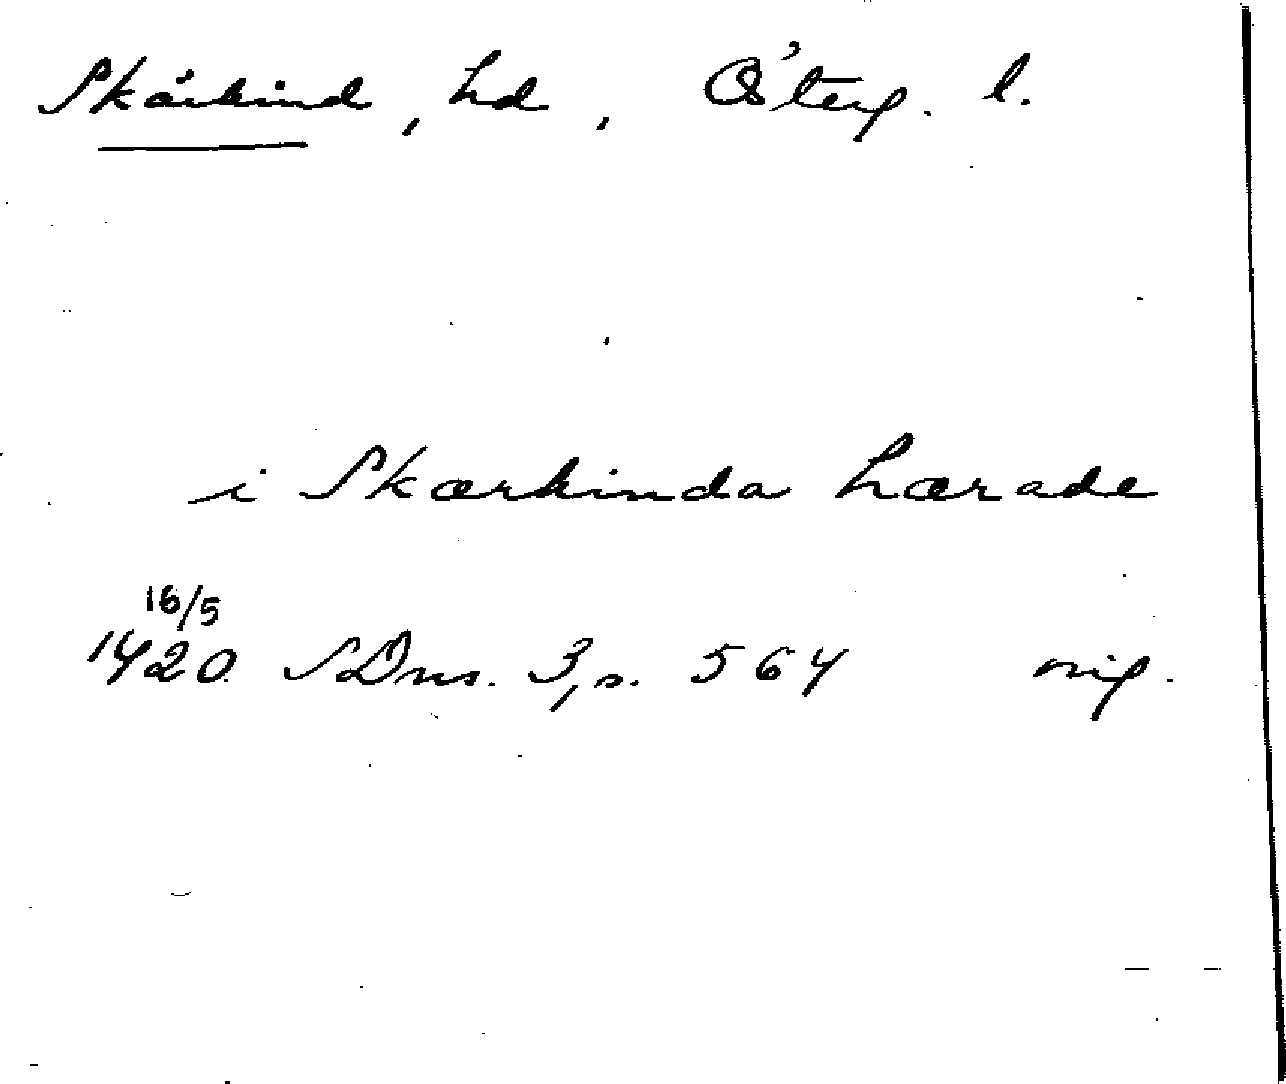 Skärkind, hd, Österg. l.
i Skærkinda hærade
16/5
1420 SDns. 3, s. 564 orig.